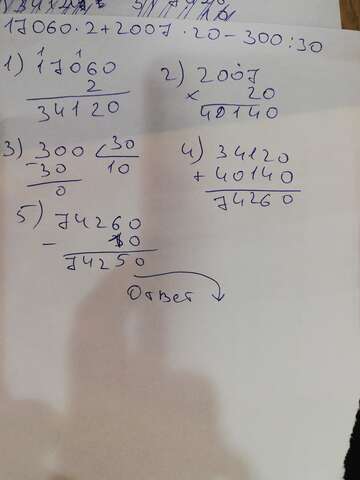 17060·2+2007·20-300:30
1) 17060
2
34120
2) 2007
× 20
40140
3) 300 30
-30 10
0
4) 34120
+ 40140
74260
5) 74260
- 10
74250
Ответ